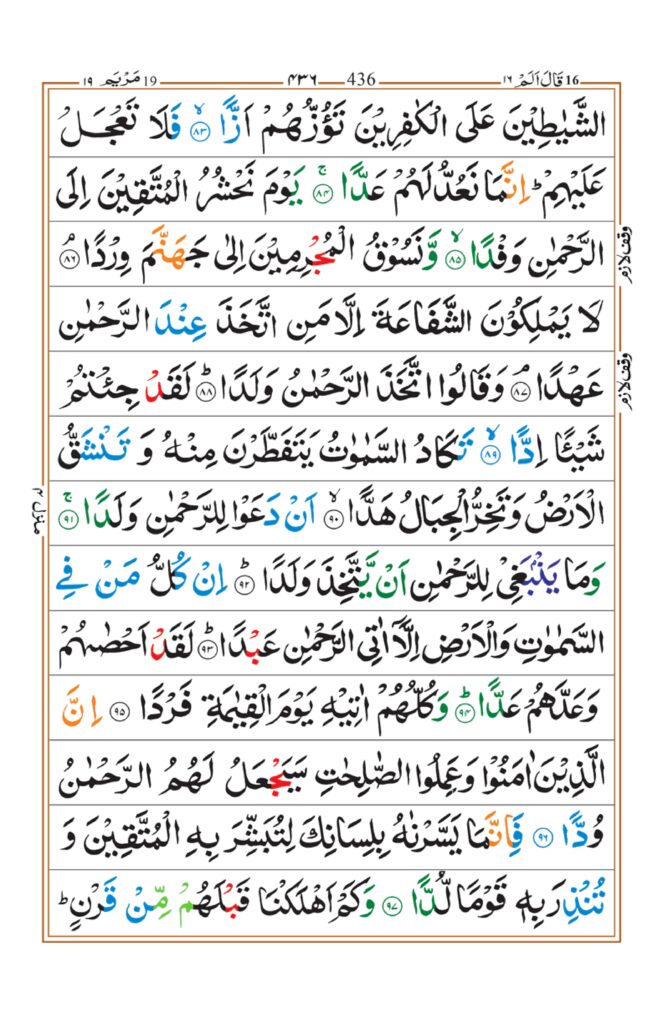 ١٦ قَالَ اَلَمْ 16 436 ٤٣٦ 19 مَرْيَم ١٩
الشَّيٰطِيْنَ عَلَى الْكٰفِرِيْنَ تَؤُزُّهُمْ اَزًّا ۙ‏﴿٨٣﴾ فَلَا تَعْجَلْ
عَلَيْهِمْ ؕ اِنَّمَا نَعُدُّ لَهُمْ عَدًّا ۚ‏﴿٨٤﴾ يَوْمَ نَحْشُرُ الْمُتَّقِيْنَ اِلَى
الرَّحْمٰنِ وَفْدًا ۙ‏﴿٨٥﴾ وَّنَسُوْقُ الْمُجْرِمِيْنَ اِلٰى جَهَنَّمَ وِرْدًا ۘ‏﴿٨٦﴾
وقف لازم
لَا يَمْلِكُوْنَ الشَّفَاعَةَ اِلَّا مَنِ اتَّخَذَ عِنْدَ الرَّحْمٰنِ
عَهْدًا ۘ‏﴿٨٧﴾ وَقَالُوا اتَّخَذَ الرَّحْمٰنُ وَلَدًا ؕ‏﴿٨٨﴾ لَقَدْ جِئْتُمْ
وقف لازم
شَيْئًا اِدًّا ۙ‏﴿٨٩﴾ تَكَادُ السَّمٰوٰتُ يَتَفَطَّرْنَ مِنْهُ وَ تَنْشَقُّ
الْاَرْضُ وَتَخِرُّ الْجِبَالُ هَدًّا ۙ‏﴿٩٠﴾ اَنْ دَعَوْا لِلرَّحْمٰنِ وَلَدًا ۚ‏﴿٩١﴾
منزل ٤
وَمَا يَنْۢبَغِىْ لِلرَّحْمٰنِ اَنْ يَّتَّخِذَ وَلَدًا ؕ‏﴿٩٢﴾ اِنْ كُلُّ مَنْ فِى
السَّمٰوٰتِ وَالْاَرْضِ اِلَّاۤ اٰتِى الرَّحْمٰنِ عَبْدًا ؕ‏﴿٩٣﴾ لَقَدْ اَحْصٰٮهُمْ
وَعَدَّهُمْ عَدًّا ؕ‏﴿٩٤﴾ وَكُلُّهُمْ اٰتِيْهِ يَوْمَ الْقِيٰمَةِ فَرْدًا ‏﴿٩٥﴾ اِنَّ
الَّذِيْنَ اٰمَنُوْا وَعَمِلُوا الصّٰلِحٰتِ سَيَجْعَلُ لَهُمُ الرَّحْمٰنُ
وُدًّا ‏﴿٩٦﴾ فَاِنَّمَا يَسَّرْنٰهُ بِلِسَانِكَ لِتُبَشِّرَ بِهِ الْمُتَّقِيْنَ وَ
تُنْذِرَ بِهٖ قَوْمًا لُّدًّا ‏﴿٩٧﴾ وَكَمْ اَهْلَكْنَا قَبْلَهُمْ مِّنْ قَرْنٍ ؕ